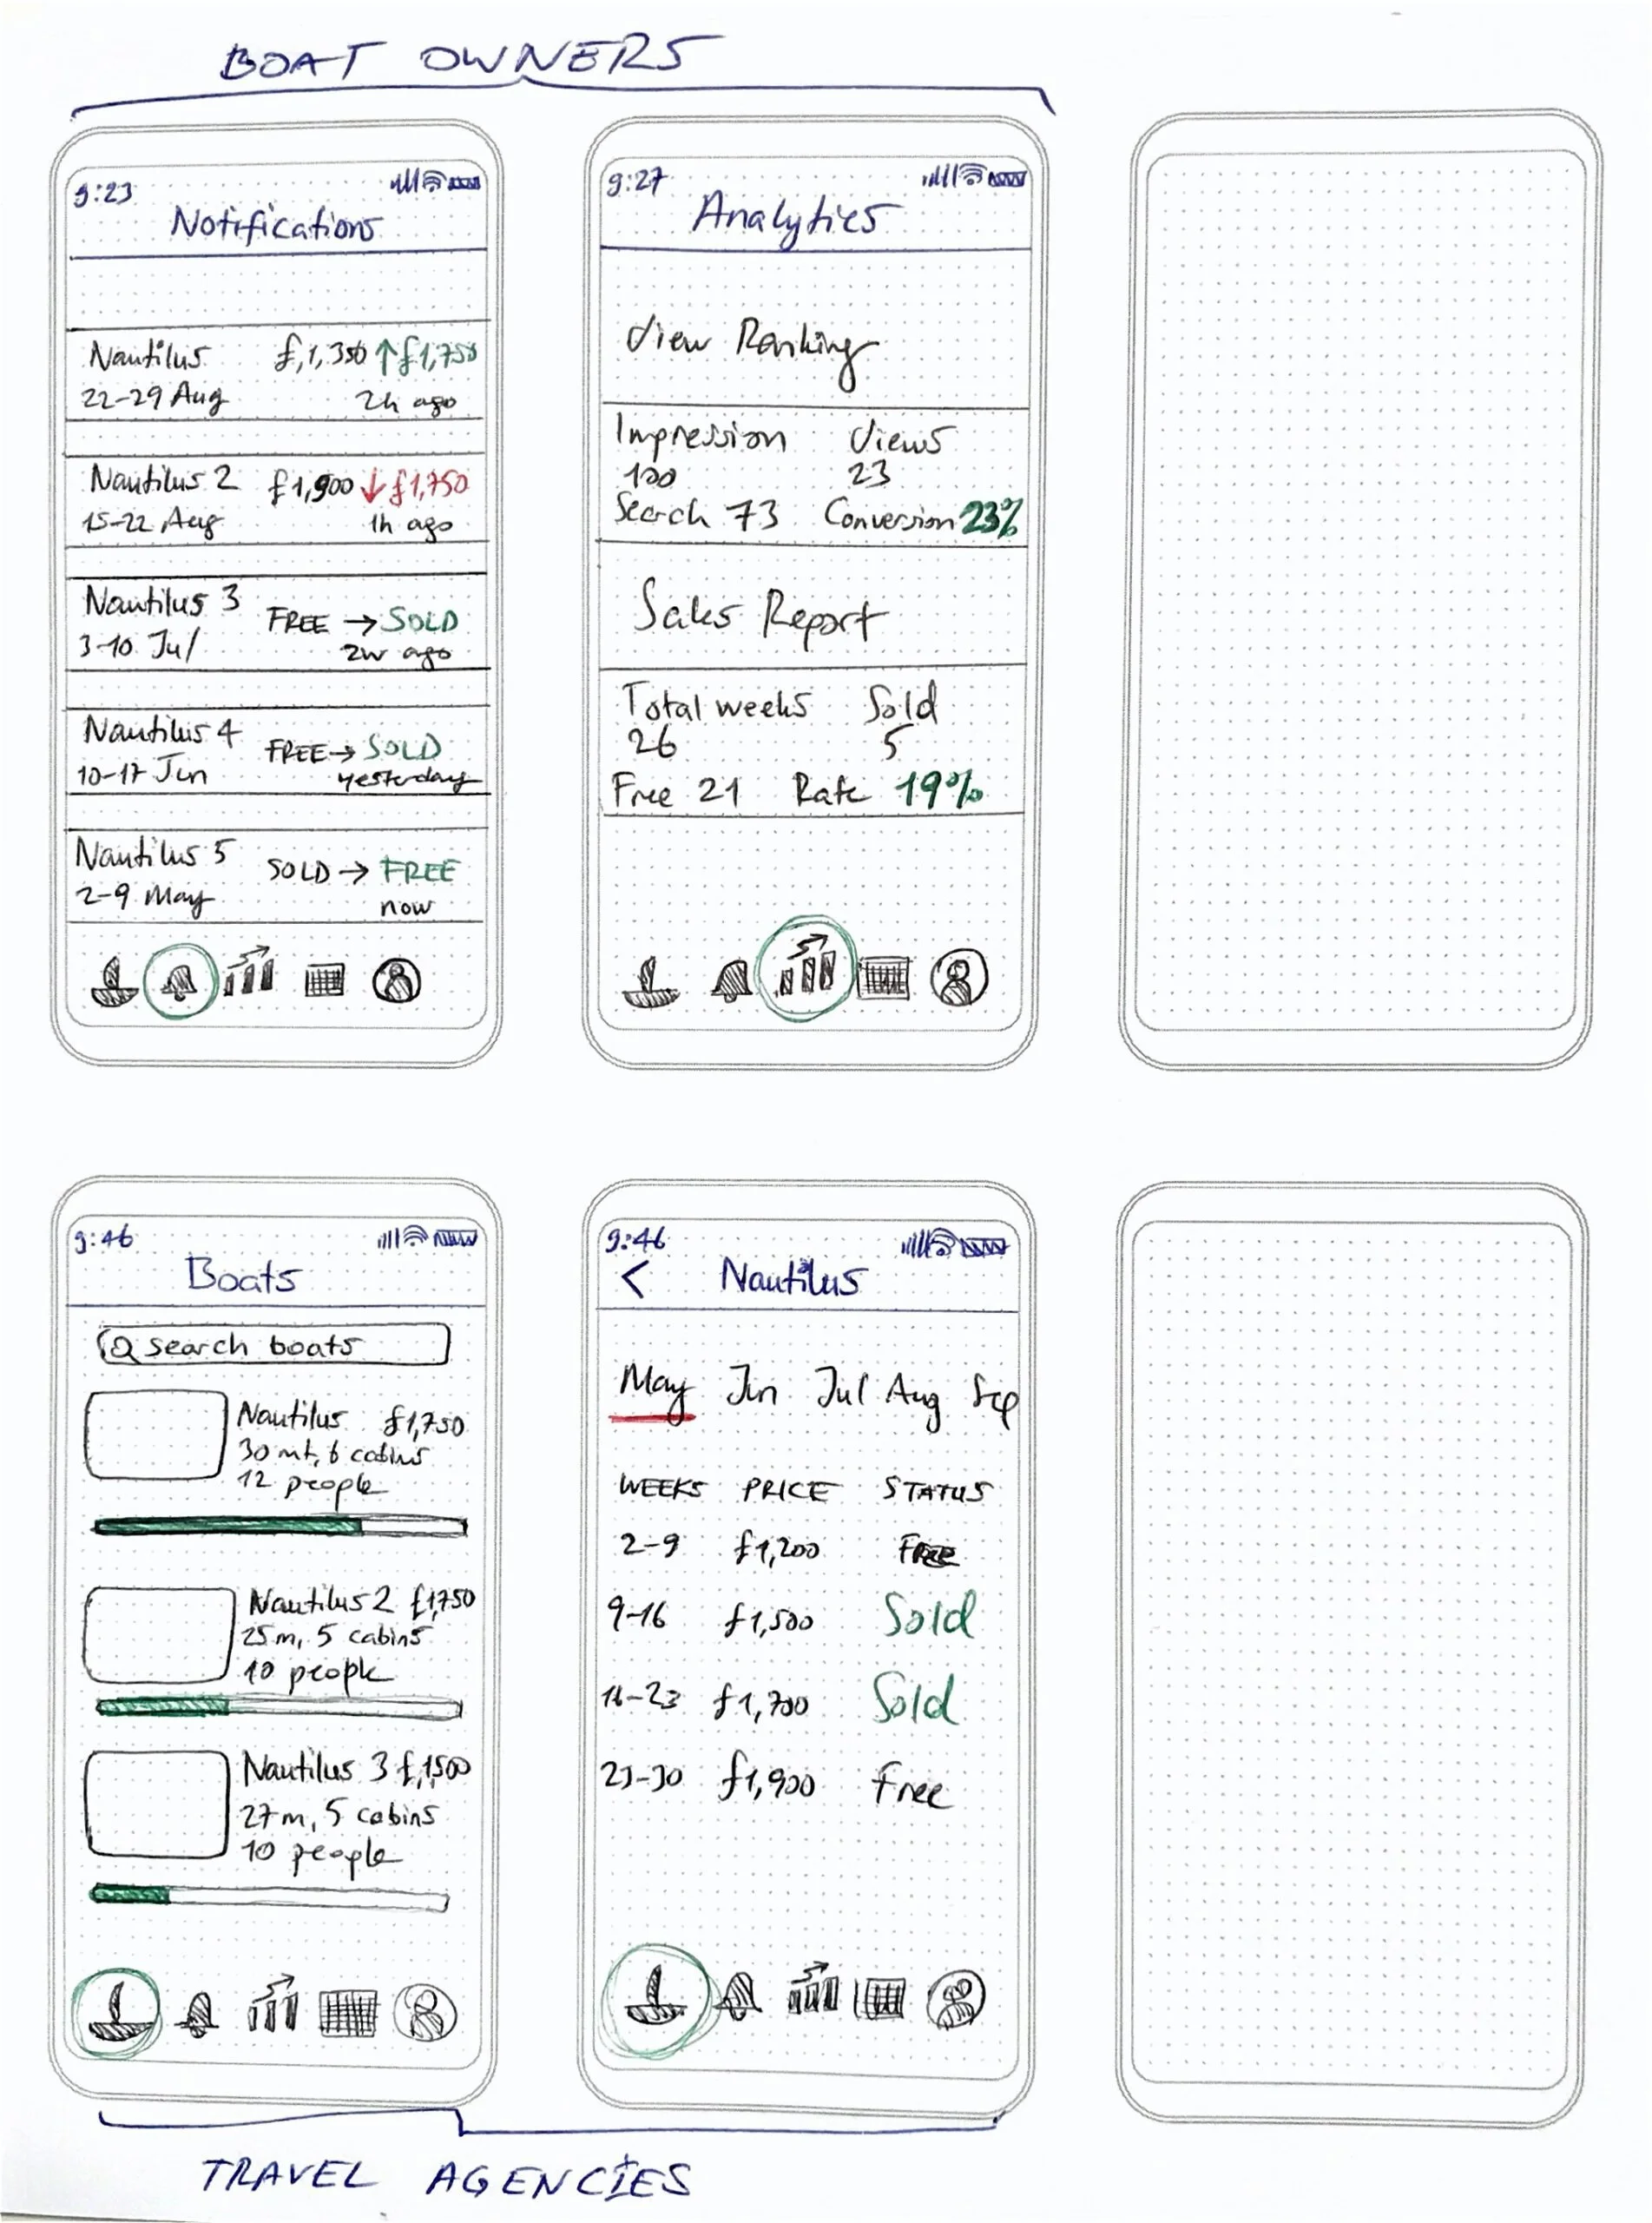 BOAT OWNERS
9:23
Notifications
Nautilus £1,350 ↑ £1,750
22-29 Aug 2h ago
Nautilus 2 £1,900 ↓ £1,750
15-22 Aug 1h ago
Nautilus 3 FREE → SOLD
3-10 Jul 2w ago
Nautilus 4 FREE → SOLD
10-17 Jun yesterday
Nautilus 5 SOLD → FREE
2-9 May now
9:27
Analytics
View Ranking
Impression Views
100 23
Search 73 Conversion 23%
Sales Report
Total weeks Sold
26 5
Free 21 Rate 19%
9:46
Boats
search boats
Nautilus £1,750
30 mt, 6 cabins
12 people
Nautilus 2 £1,750
25m, 5 cabins
10 people
Nautilus 3 £1,500
27m, 5 cabins
10 people
9:46
< Nautilus
May Jun Jul Aug Sep
WEEKS PRICE STATUS
2-9 £1,200 Free
9-16 £1,500 Sold
16-23 £1,700 Sold
23-30 £1,900 Free
TRAVEL AGENCIES